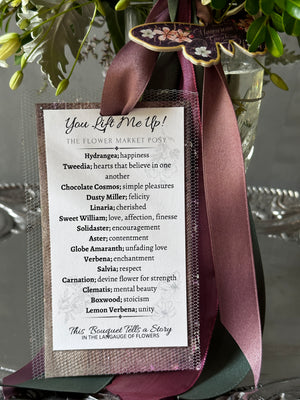 You Lift Me Up!
THE FLOWER MARKET POSY
Hydrangea; happiness
Tweedia; hearts that believe in one
another
Chocolate Cosmos; simple pleasures
Dusty Miller; felicity
Linaria; cherished
Sweet William; love, affection, finesse
Solidaster; encouragement
Aster; contentment
Globe Amaranth; unfading love
Verbena; enchantment
Salvia; respect
Carnation; devine flower for strength
Clematis; mental beauty
Boxwood; stoicism
Lemon Verbena; unity
This Bouquet Tells a Story
IN THE LANGAUGE OF FLOWERS